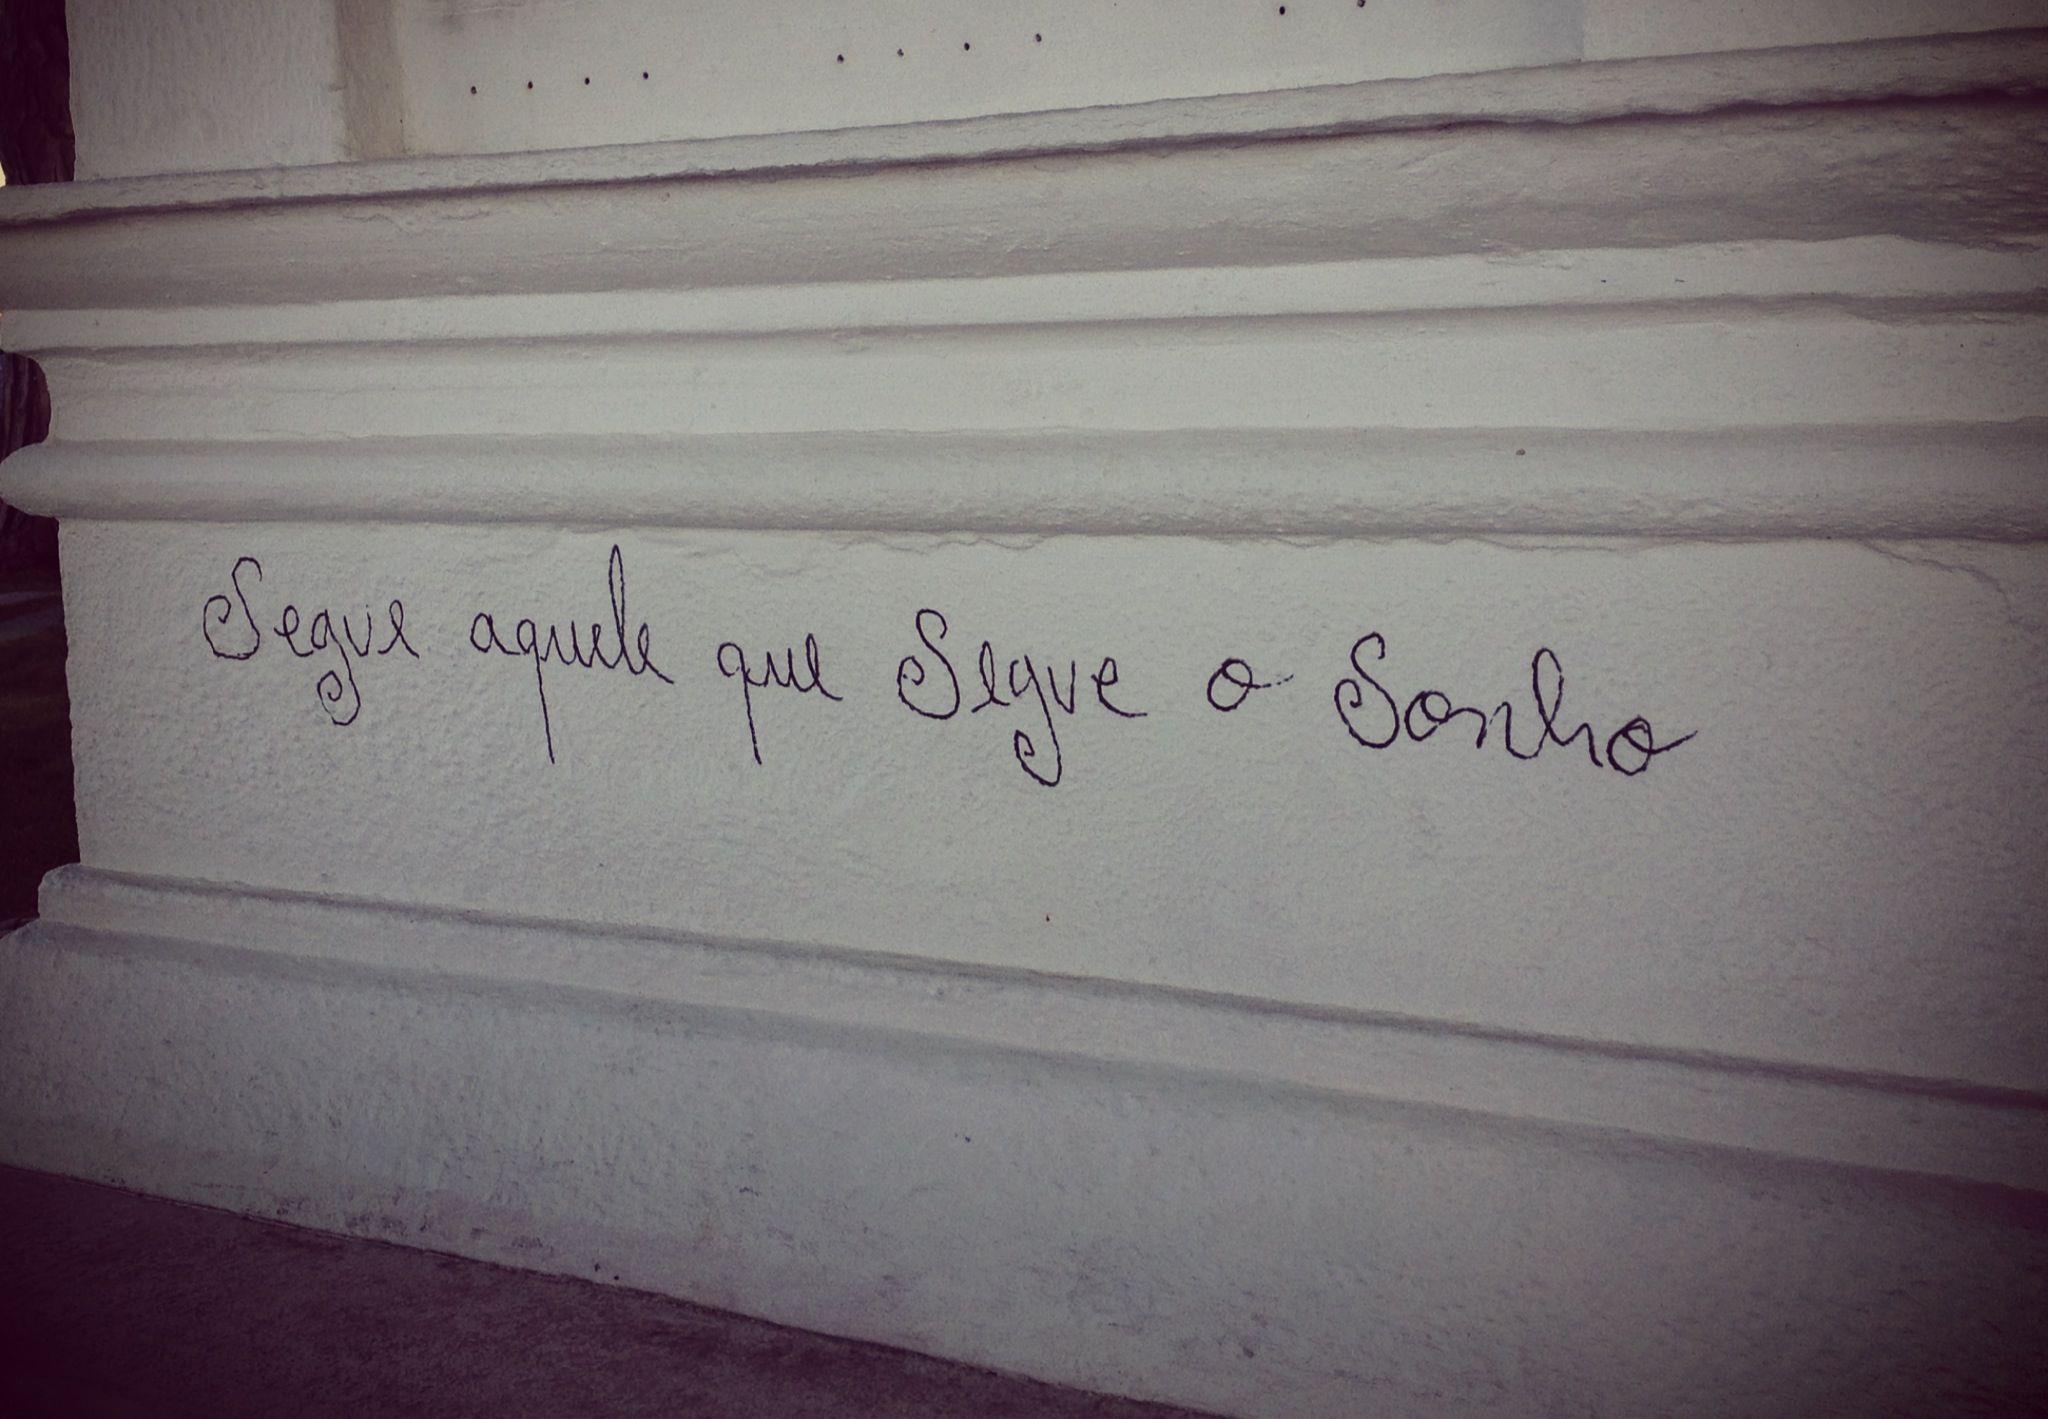 Segue aquele que Segue o Sonho